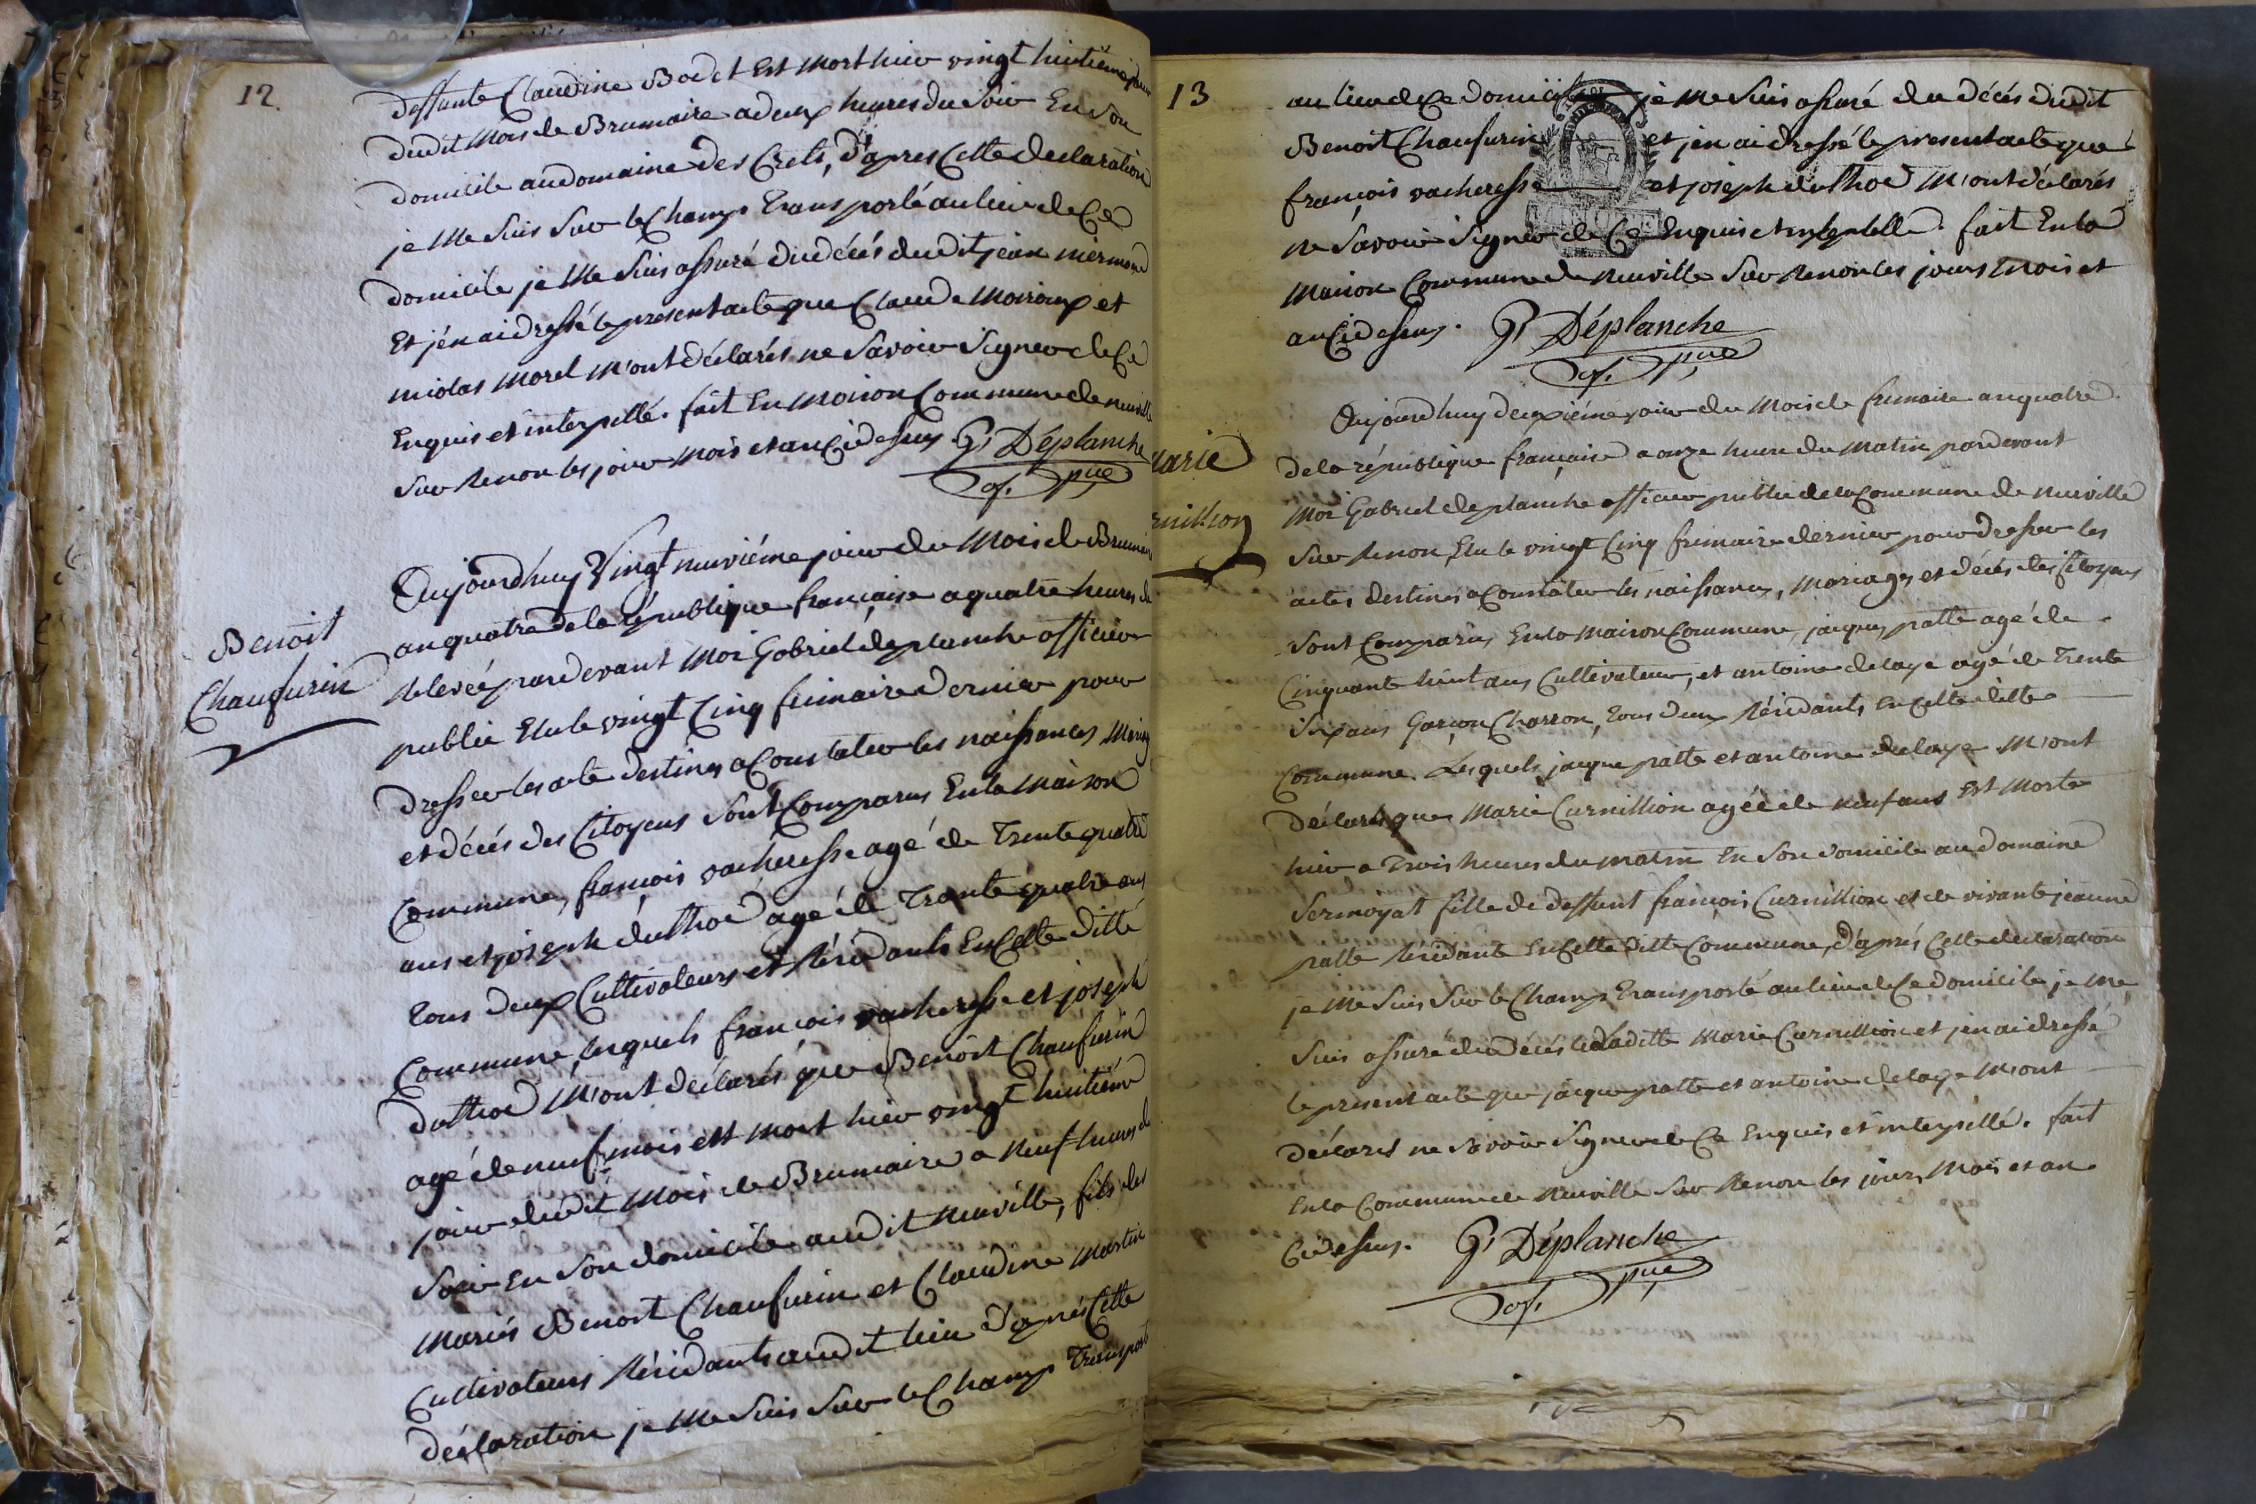 12
deffunte Claudine Bodet Est mort hier vingt huitième jour
dudit mois de Brumaire a deux heures du Soir En Son
domicile au domaine des Crets, d'apres Cette declaration
je me Suis Sur le Champs Transporté au lieu de Ce
domicile je me Suis assuré du décés dudit jean mermond
Et j'en ai dressé le present acte que Claude Moiroux et
nicolas morel m'ont déclarés ne Savoir Signer de Ce
Enquis et interpellé. fait En Maison Commune de neuville
Sur Renon les jour mois et an Cidessus. G. Déplanche
of. pue
Benoit
Chaufurin
Aujourdhuy Vingt neuviéme jour du Mois de Brumaire
an quatre de la république française a quatre heures de
Relevée pardevant Moi Gabriel déplanche officier
public Elu le vingt Cinq frimaire dernier pour
dresser les acte destinés a Constater les naissances Mariag
et décés des Citoyens Sont Comparus En la Maison
Commune, françois vacheresse agé de Trente quatre
ans et joseph duthod agé de Trante quatre ans
Tous deux Cultivateurs et Résidants En Cette ditte
Commune, lesquels françois vacheresse et joseph
duthod M'ont declarés que Benoit Chaufurin
agé de neuf mois est mort hier vingt huitième
jour dudit mois de Brumaire a neuf heures du
Soir En Son domicile audit neuville, fils des
Mariés Benoit Chaufurin et Claudine Martin
Cultivateurs Résidants audit lieu D'après Cette
déclaration je me Suis Sur le Champs Transporté
13
au lieu de Ce domicile je me Suis assuré du décés dudit
Benoit Chaufurin et j'en ai dressé le present acte que
françois vacheresse et joseph duthod M'ont déclarés
ne Savoir Signer de Ce Enquis et interpellé. fait En la
Maison Commune de neuville Sur Renon les jours mois et
an Cidessus. G. Déplanche
of. pue
Marie
Curnillion
Aujourdhuy deuxiéme jour du Mois de frimaire an quatre
de la république française a onze heure du Matin pardevant
Moi Gabriel deplanche officier public de la Commune de neuville
Sur Renon, Elu le vingt Cinq frimaire dernier pour dresser les
actes destinés a Constater les naissances, Mariages et décés des Citoyens
Sont Comparus En la Maison Commune, jacques patte agé de
Cinquante huit ans Cultivateur, et antoine delaye agé de Trente
Six ans Garçon Charron, Tous deux Résidants En Cette ditte
Commune. Lesquels jacque patte et antoine delaye M'ont
déclarés que Marie Curnillion agée de neuf ans Est Morte
hier a Trois heures du matin En Son domicile au domaine
Sermoyat fille de deffunt françois Curnillion et de vivante jeanne
patte Résidante En Cette ditte Commune, d'aprés Cette declaration
je me Suis Sur le Champs Transporté au lieu de Ce domicile je me
Suis assuré du décés de Laditte Marie Curnillion et j'en ai dressé
le present acte que jacque patte et antoine delaye M'ont
déclarés ne Savoir Signer de Ce Enquis et interpellé. fait
En la Commune de Neuville Sur Renon les jours, Mois et an
Cidessus. G. Déplanche
of. pue